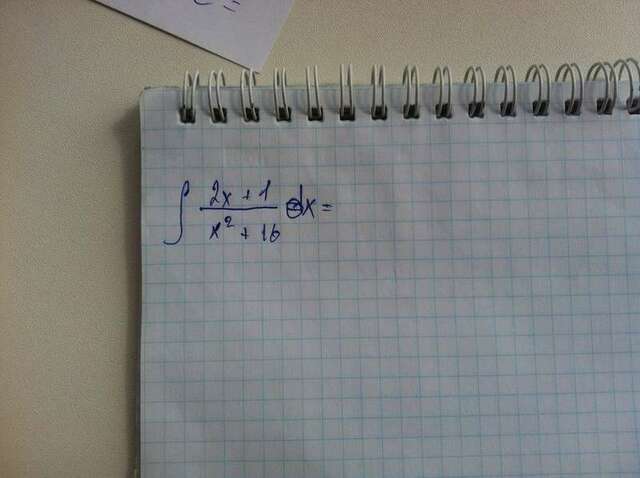 e =
∫ (2x + 1)/(x² + 16) dx =